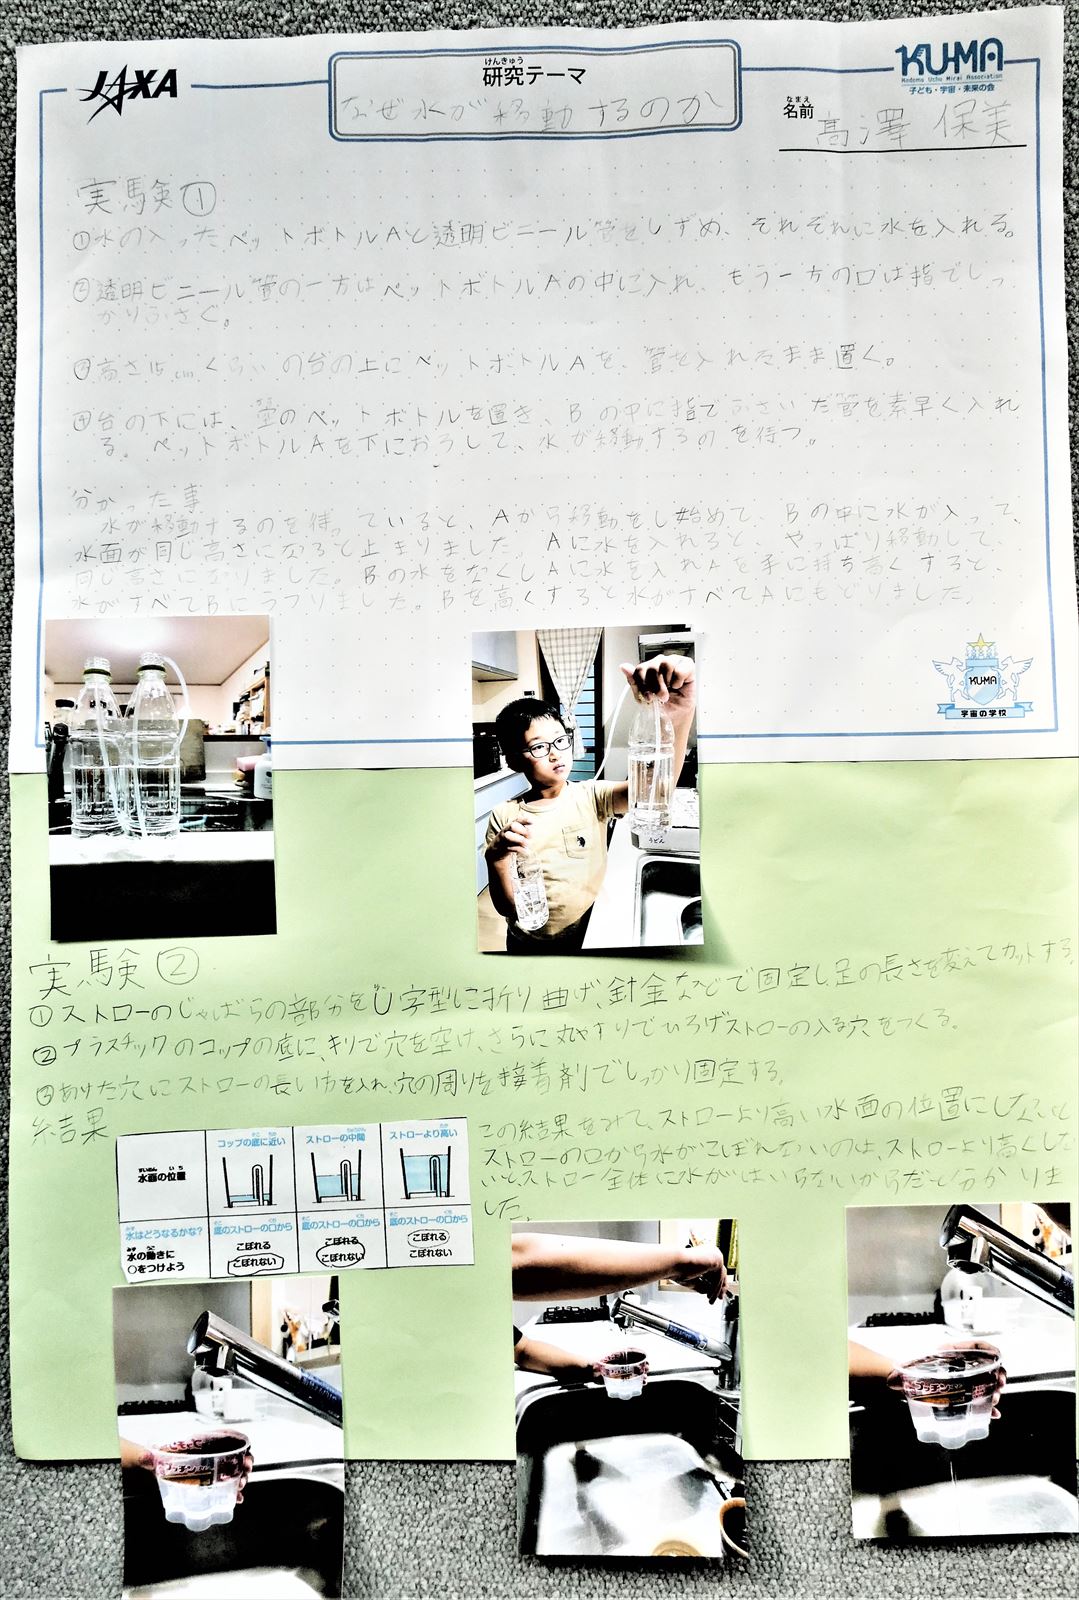 JAXA
けんきゅう
研究テーマ
なぜ水が移動するのか
KU-MA
Kodomo Uchu Mirai Association
子ども・宇宙・未来の会
なまえ
名前 高澤 保美
実験①
①水の入ったペットボトルAと透明ビニール管をしずめ、それぞれに水を入れる。
②透明ビニール管の一方はペットボトルAの中に入れ、もう一方の口は指でしっ
かりふさぐ。
③高さ15cmくらいの台の上にペットボトルAを、管を入れたまま置く。
④台の下には、空のペットボトルを置き、Bの中に指でふさいだ管を素早く入れ
る。ペットボトルAを下におろして、水が移動するのを待つ。
分かった事
水が移動するのを待っていると、Aから移動をし始めて、Bの中に水が入って、
水面が同じ高さになると止まりました。Aに水を入れると、やっぱり移動して、
同じ高さになりました。Bの水をなくしAに水を入れAを手に持ち高くすると、
水がすべてBにうつりました。Bを高くすると水がすべてAにもどりました。
KU-MA
宇宙の学校
うどん
実験②
①ストローのじゃばらの部分をU字型に折り曲げ、針金などで固定し足の長さを変えてカットする。
②プラスチックのコップの底に、キリで穴を空け、さらに丸やすりでひろげストローの入る穴をつくる。
③あけた穴にストローの長い方を入れ、穴の周りを接着剤でしっかり固定する。
結果
すいめん いち
水面の位置
コップの底に近い
ストローの中間
ストローより高い
水はどうなるかな?
水の働きに
○をつけよう
底のストローの口から
こぼれる
こぼれない
底のストローの口から
こぼれる
こぼれない
底のストローの口から
こぼれる
こぼれない
この結果をみて、ストローより高い水面の位置にしないと
ストローの口から水がこぼれないのは、ストローより高くしな
いと、ストロー全体に水がはいらないからだと分かりま
した。